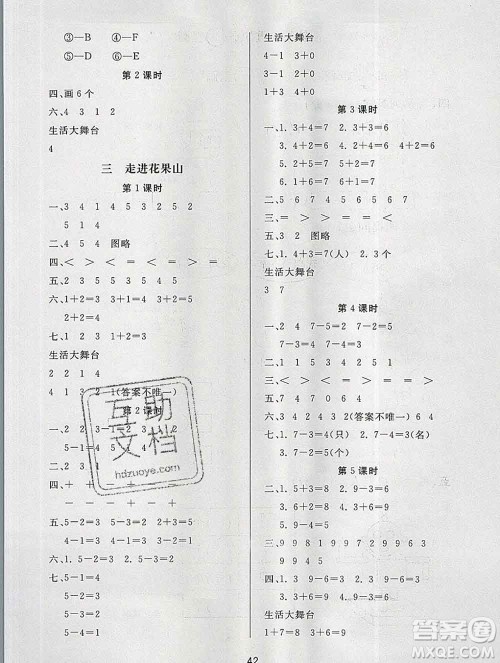 ③—B ④—F
⑤—D ⑥—E
第 2 课时
四、画 6 个
六、4 3 1 2
生活大舞台
4
三 走进花果山
第 1 课时
一、3 4 1 4 5 3 2 5 2
5 1 4
二、4 5 4 图略
四、< > < = = > <
五、3 1 5 2 3 4
六、1+2=3 3+1=4
2+2=4
七、1 2 1+2=3
生活大舞台
2 2 1 4
4 1 3 2-1(答案不唯一)
第 2 课时
生活大舞台
4-1 3+0
2+1 3+0
1+3 4+0
第 3 课时
一、1. 3+4=7 2. 3+3=6
3. 4+2=6 4. 3+4=7
5. 1+6=7 6. 5+2=7
二、5 0 6 7 5 6 7 6 7
三、> = > = = <
五、3 2 图略
七、1. 4+3=7(人) 2. 3 个
生活大舞台
3 7
第 4 课时
一、2 7-5=2 7-2=5
二、1. 5 2 3 6 2 4 5 1
三、< = > < > >
五、7 4 7 0 6 4
六、4 3 2 4(答案不唯一) 6 4
七、1. 7-4=3(只) 2. 7-4=3(名)
3. 7-5=2(个)
第 5 课时
一、1. 5+3=8 2. 9-3=6
3. 6+2=8 4. 3+6=9
二、9 9 8 1 9 9 9 2 9 7 9
9 9 4 9
四、1. 3 9-6=3 2. 9-1=8
3. 2+4=6 9-6=3
生活大舞台
1+7=8 9-3=6
五、5-2=3 5-1=4 5-3=2
5-1=4
六、1. 5-2=3 2. 5-3=2
3. 5-2=3 4. 5-4=1
生活大舞台
5-4=1
42
互助文档
hdzuoye.com
答案圈
MXQE.COM